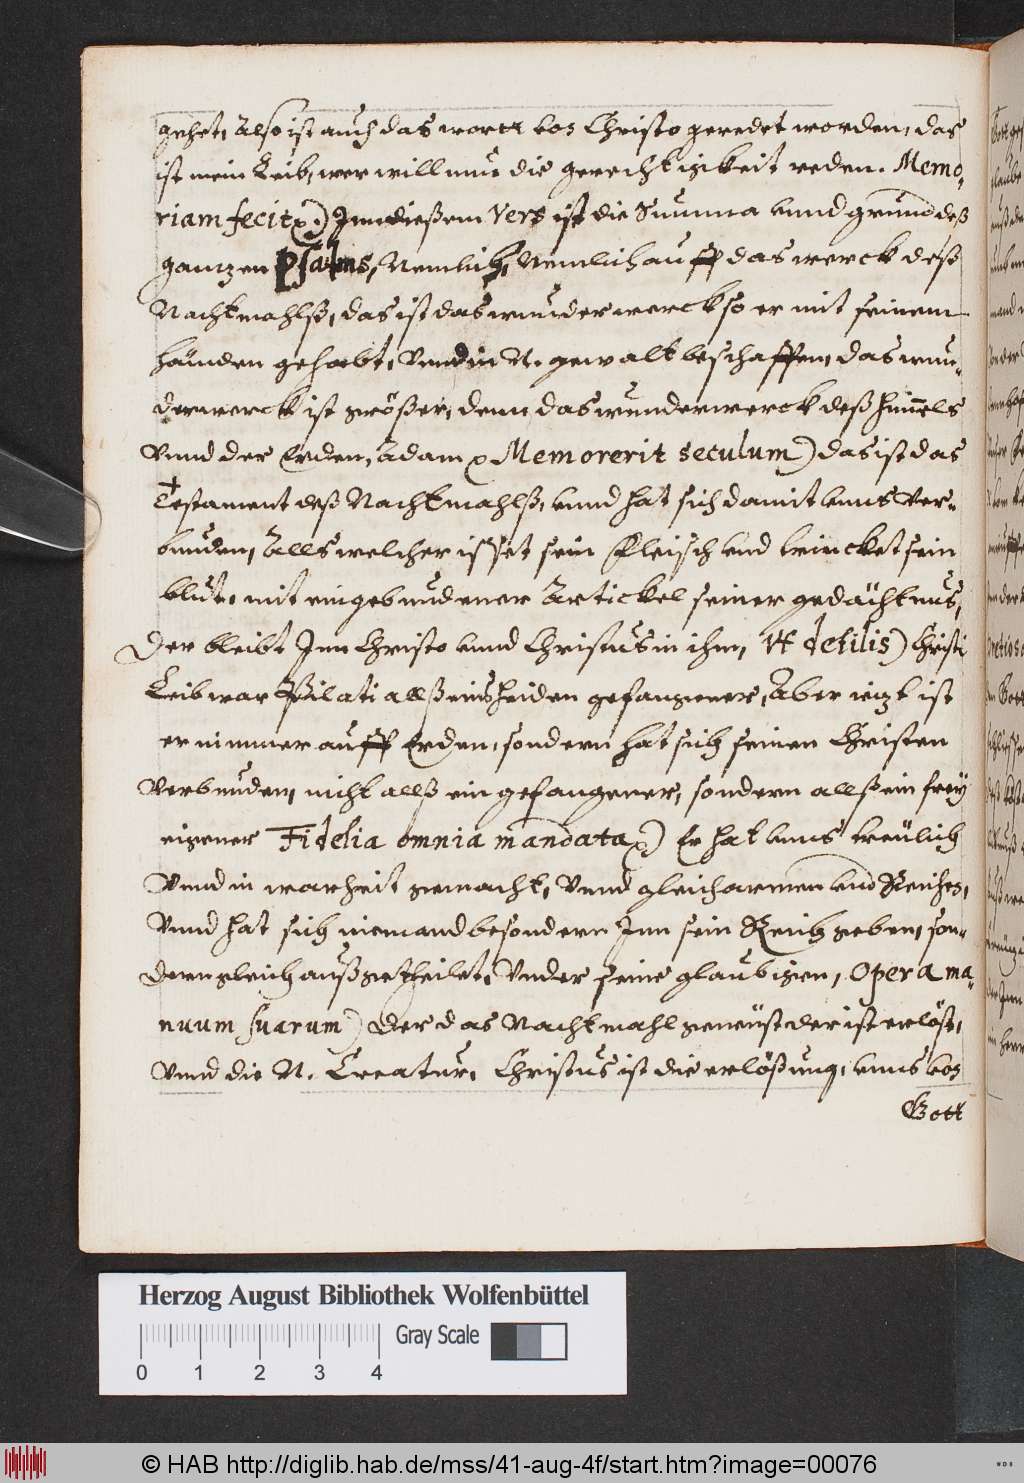 gehet, Also ist auch das wortt von Christo geredet worden, das
ist mein Leib, wer will nun die gerechtigkeit reden. Memo-
riam fecit) Inn dießem Vers ist die Summa vnnd grund deß
gantzen Psalms, Nemlich, Nemlich auff das werck deß
Nachtmahlß, das ist das wunderwerck so er mit seinem
händen gehabt, Vnnd in N. gewalt beschaffen, das wun-
derwerck ist größer, denn das wunderwerck deß himels
Vnnd der Erden, Adam Memorerit seculum) das ist das
Testament deß Nachtmahlß, vnnd hat sich damit vnns ver-
bunden, Alls welcher isset sein Fleisch vnd trincket sein
blut, mit eingebundener Artickel seiner gedächtnus,
Der bleibt Inn Christo vnnd Christus in ihm, Christi
Leib war Pilati allß eins heiden gefangener, Aber ietzt ist
er nimmer auff Erden, sondern hat sich seinen Christen
Verbunden, nicht allß ein gefangener, sondern allß ein frey
eigener Fidelia omnia mandata) Er hat vnns treulich
Vnnd in warheit gemacht, Vnnd gleich armen vnd Reichen,
Vnnd hat sich niemand besondern Inn sein Reich geben, son-
dern gleich außgetheilet, Vnder seine glaubigen, Opera ma-
nuum suarum) Der das Nachtmahl geneust der ist erlöst,
Vnnd die N. Creatur, Christus ist die erlößung, vnns von
Gott
Herzog August Bibliothek Wolfenbüttel
Gray Scale
0 1 2 3 4
© HAB http://diglib.hab.de/mss/41-aug-4f/start.htm?image=00076